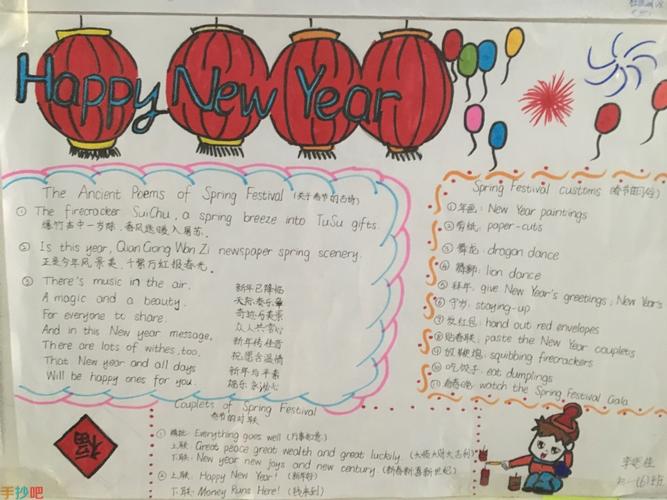 Happy New Year
The Ancient Poems of Spring Festival (关于春节的古诗)
① The firecracker SuiChu, a spring breeze into TuSu gifts.
爆竹声中一岁除,春风送暖入屠苏.
② Is this year, QianGong Wan Zi newspaper spring scenery.
正是今年风景美,千紫万红报春光。
③ There's music in the air.
新年已降临
A magic and a beauty.
天际奏乐章
For everyone to share.
奇迹与美景
And in this New year message,
众人共赏
There are lots of withes, too.
新年传佳音
That New year and all days
祝愿含温情
Will be happy ones for you.
新年与平素
Spring Festival customs (春节的习俗)
①年画: New Year paintings
②剪纸: paper-cuts
③舞龙: dragon dance
④舞狮: lion dance
⑤拜年: give New Year's greetings; New Year's
⑥守岁: staying-up
⑦发红包: hand out red envelopes
⑧贴春联: paste the New Year couplets
⑨放鞭炮: squibbing firecrackers
⑩吃饺子: eat dumplings
看春晚: watch the Spring Festival Gala
Couplets of Spring Festival
春节的对联
① 横批: Everything goes well (万事如意)
上联: Great peace great wealth and great luckily. (大顺大财大吉利)
下联: New year new joys and new century. (新春新喜新世纪)
② 上联: Happy New Year! (新年好)
下联: Money Runs Here! (钱来到)
福
初一(6)班
手抄吧